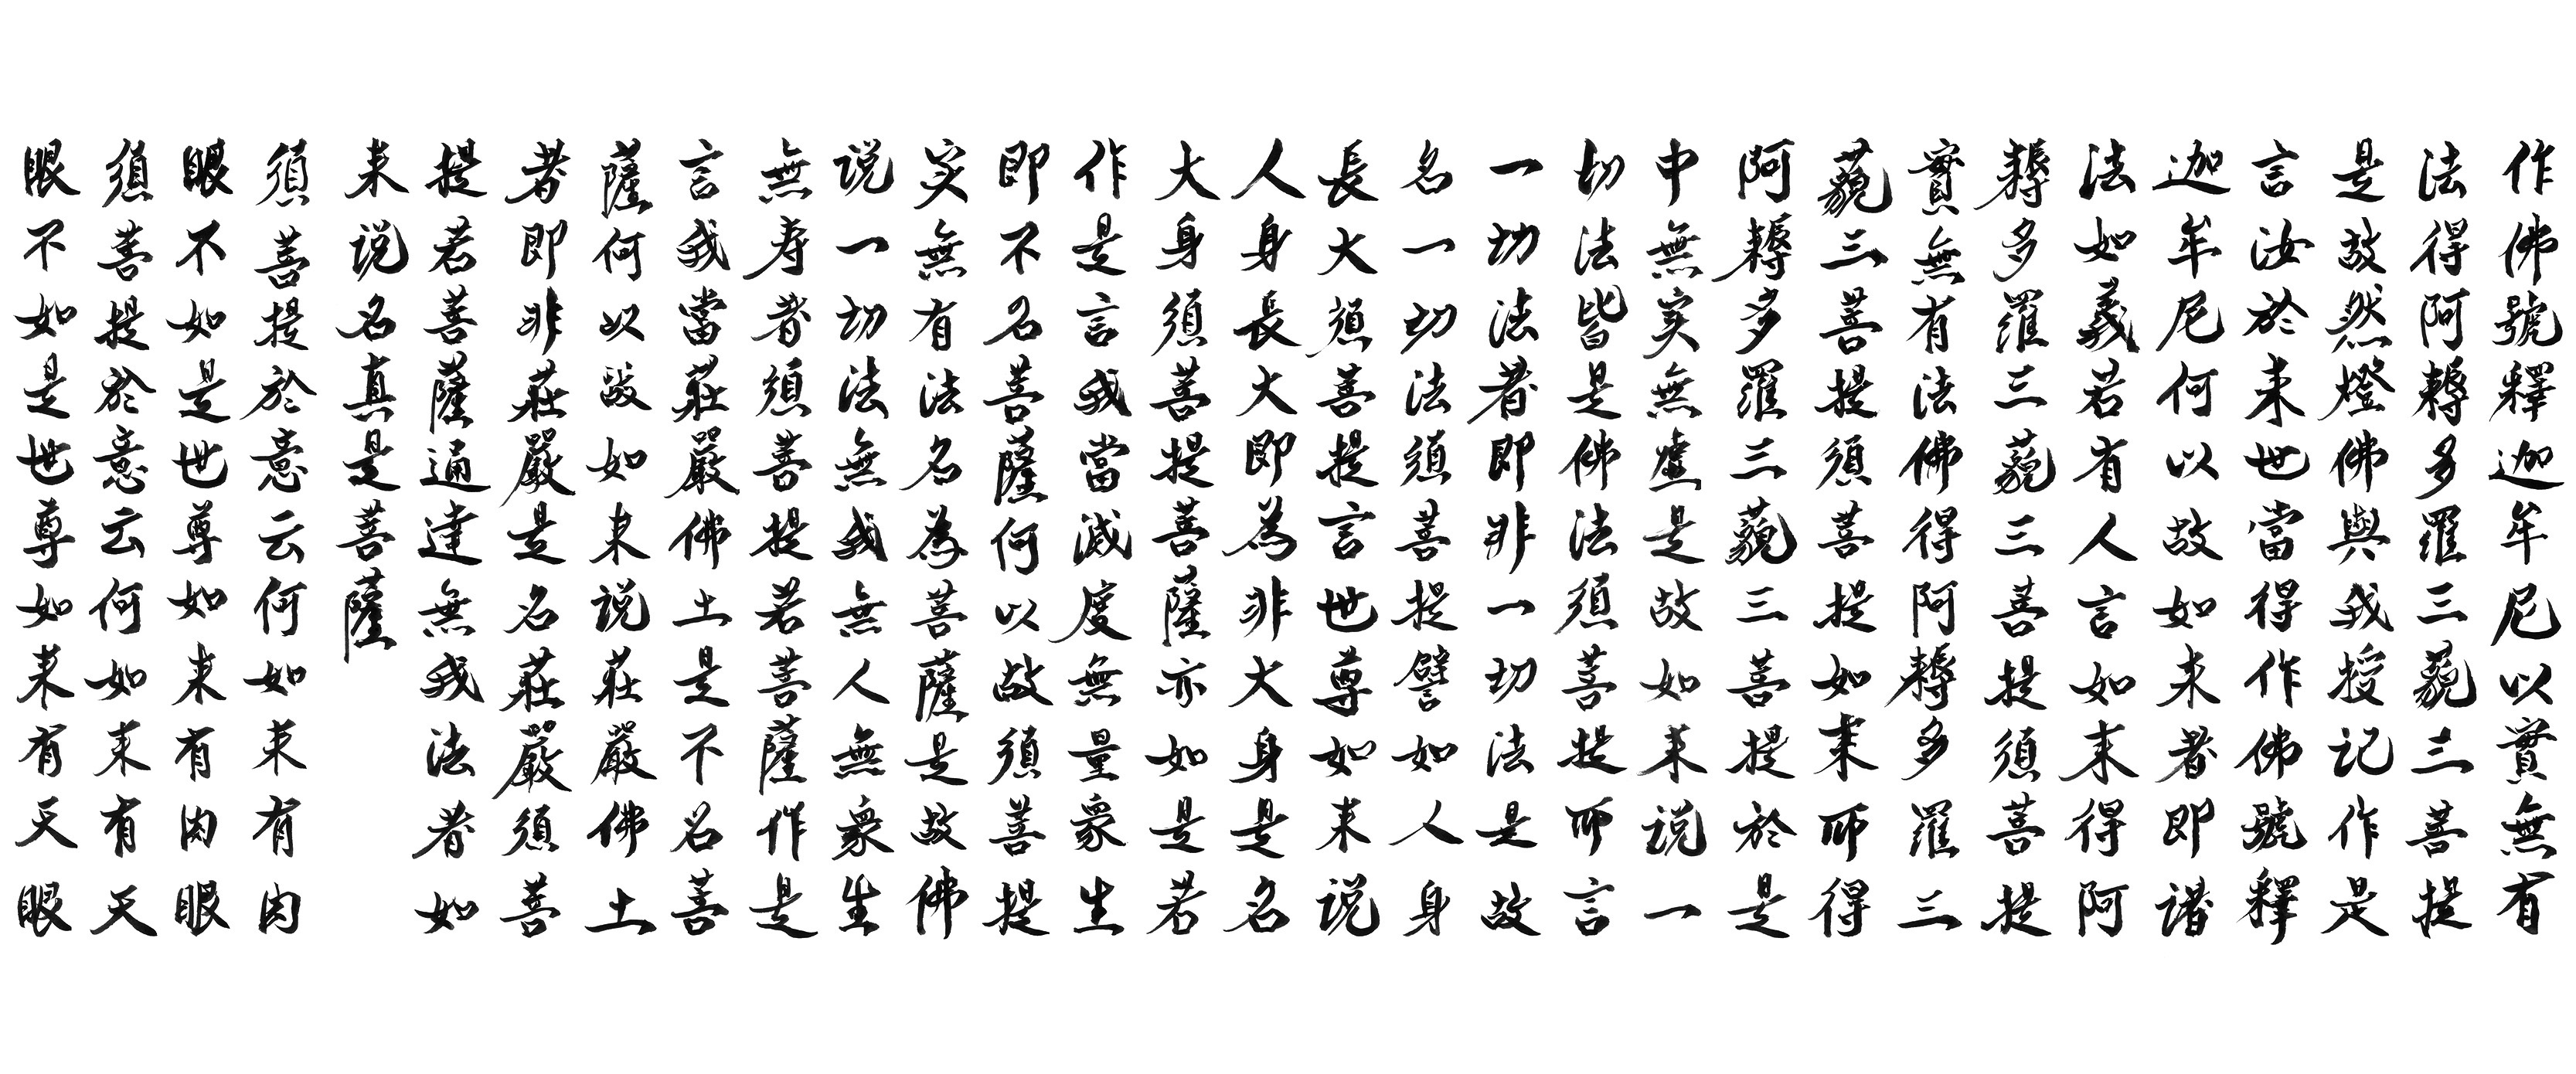 作佛號釋迦牟尼以實無有
法得阿耨多羅三藐三菩提
是故然燈佛與我授記作是
言汝於來世當得作佛號釋
迦牟尼何以故如来者即諸
法如義若有人言如来得阿
耨多羅三藐三菩提須菩提
實無有法佛得阿耨多羅三
藐三菩提須菩提如来所得
阿耨多羅三藐三菩提於是
中無实無虛是故如来说一
切法皆是佛法須菩提所言
一切法者即非一切法是故
名一切法須菩提譬如人身
長大須菩提言世尊如来说
人身長大即為非大身是名
大身須菩提菩薩亦如是若
作是言我當滅度無量衆生
即不名菩薩何以故須菩提
实無有法名為菩薩是故佛
说一切法無我無人無衆生
無寿者須菩提若菩薩作是
言我當莊嚴佛土是不名菩
薩何以故如来说莊嚴佛土
者即非莊嚴是名莊嚴須菩
提若菩薩通達無我法者如
来说名真是菩薩
須菩提於意云何如来有肉
眼不如是世尊如来有肉眼
須菩提於意云何如来有天
眼不如是世尊如来有天眼